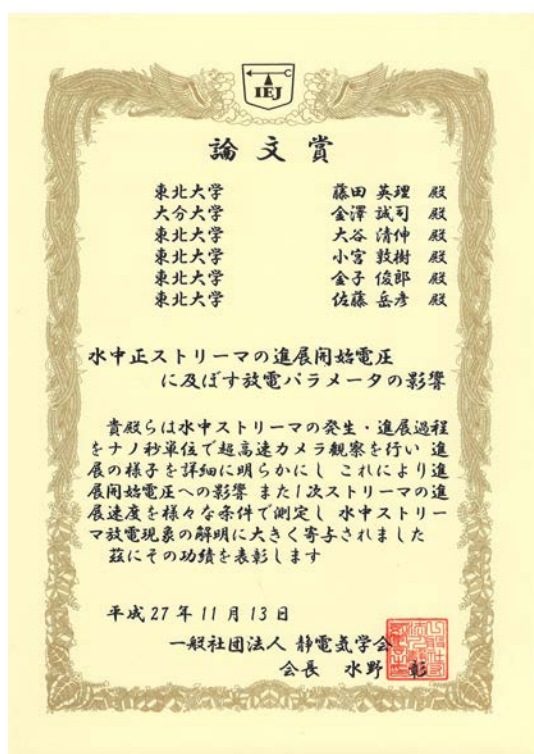 IEJ
論文賞
東北大学 藤田 英理 殿
大分大学 金澤 誠司 殿
東北大学 大谷 清伸 殿
東北大学 小宮 敦樹 殿
東北大学 金子 俊郎 殿
東北大学 佐藤 岳彦 殿
水中正ストリーマの進展開始電圧
に及ぼす放電パラメータの影響
貴殿らは水中ストリーマの発生・進展過程
をナノ秒単位で超高速カメラ観察を行い 進
展の様子を詳細に明らかにし これにより進
展開始電圧への影響 また1次ストリーマの進
展速度を様々な条件で測定し 水中ストリー
マ放電現象の解明に大きく寄与されました
茲にその功績を表彰します
平成27年11月13日
一般社団法人 静電気学会
会長 水野 彰